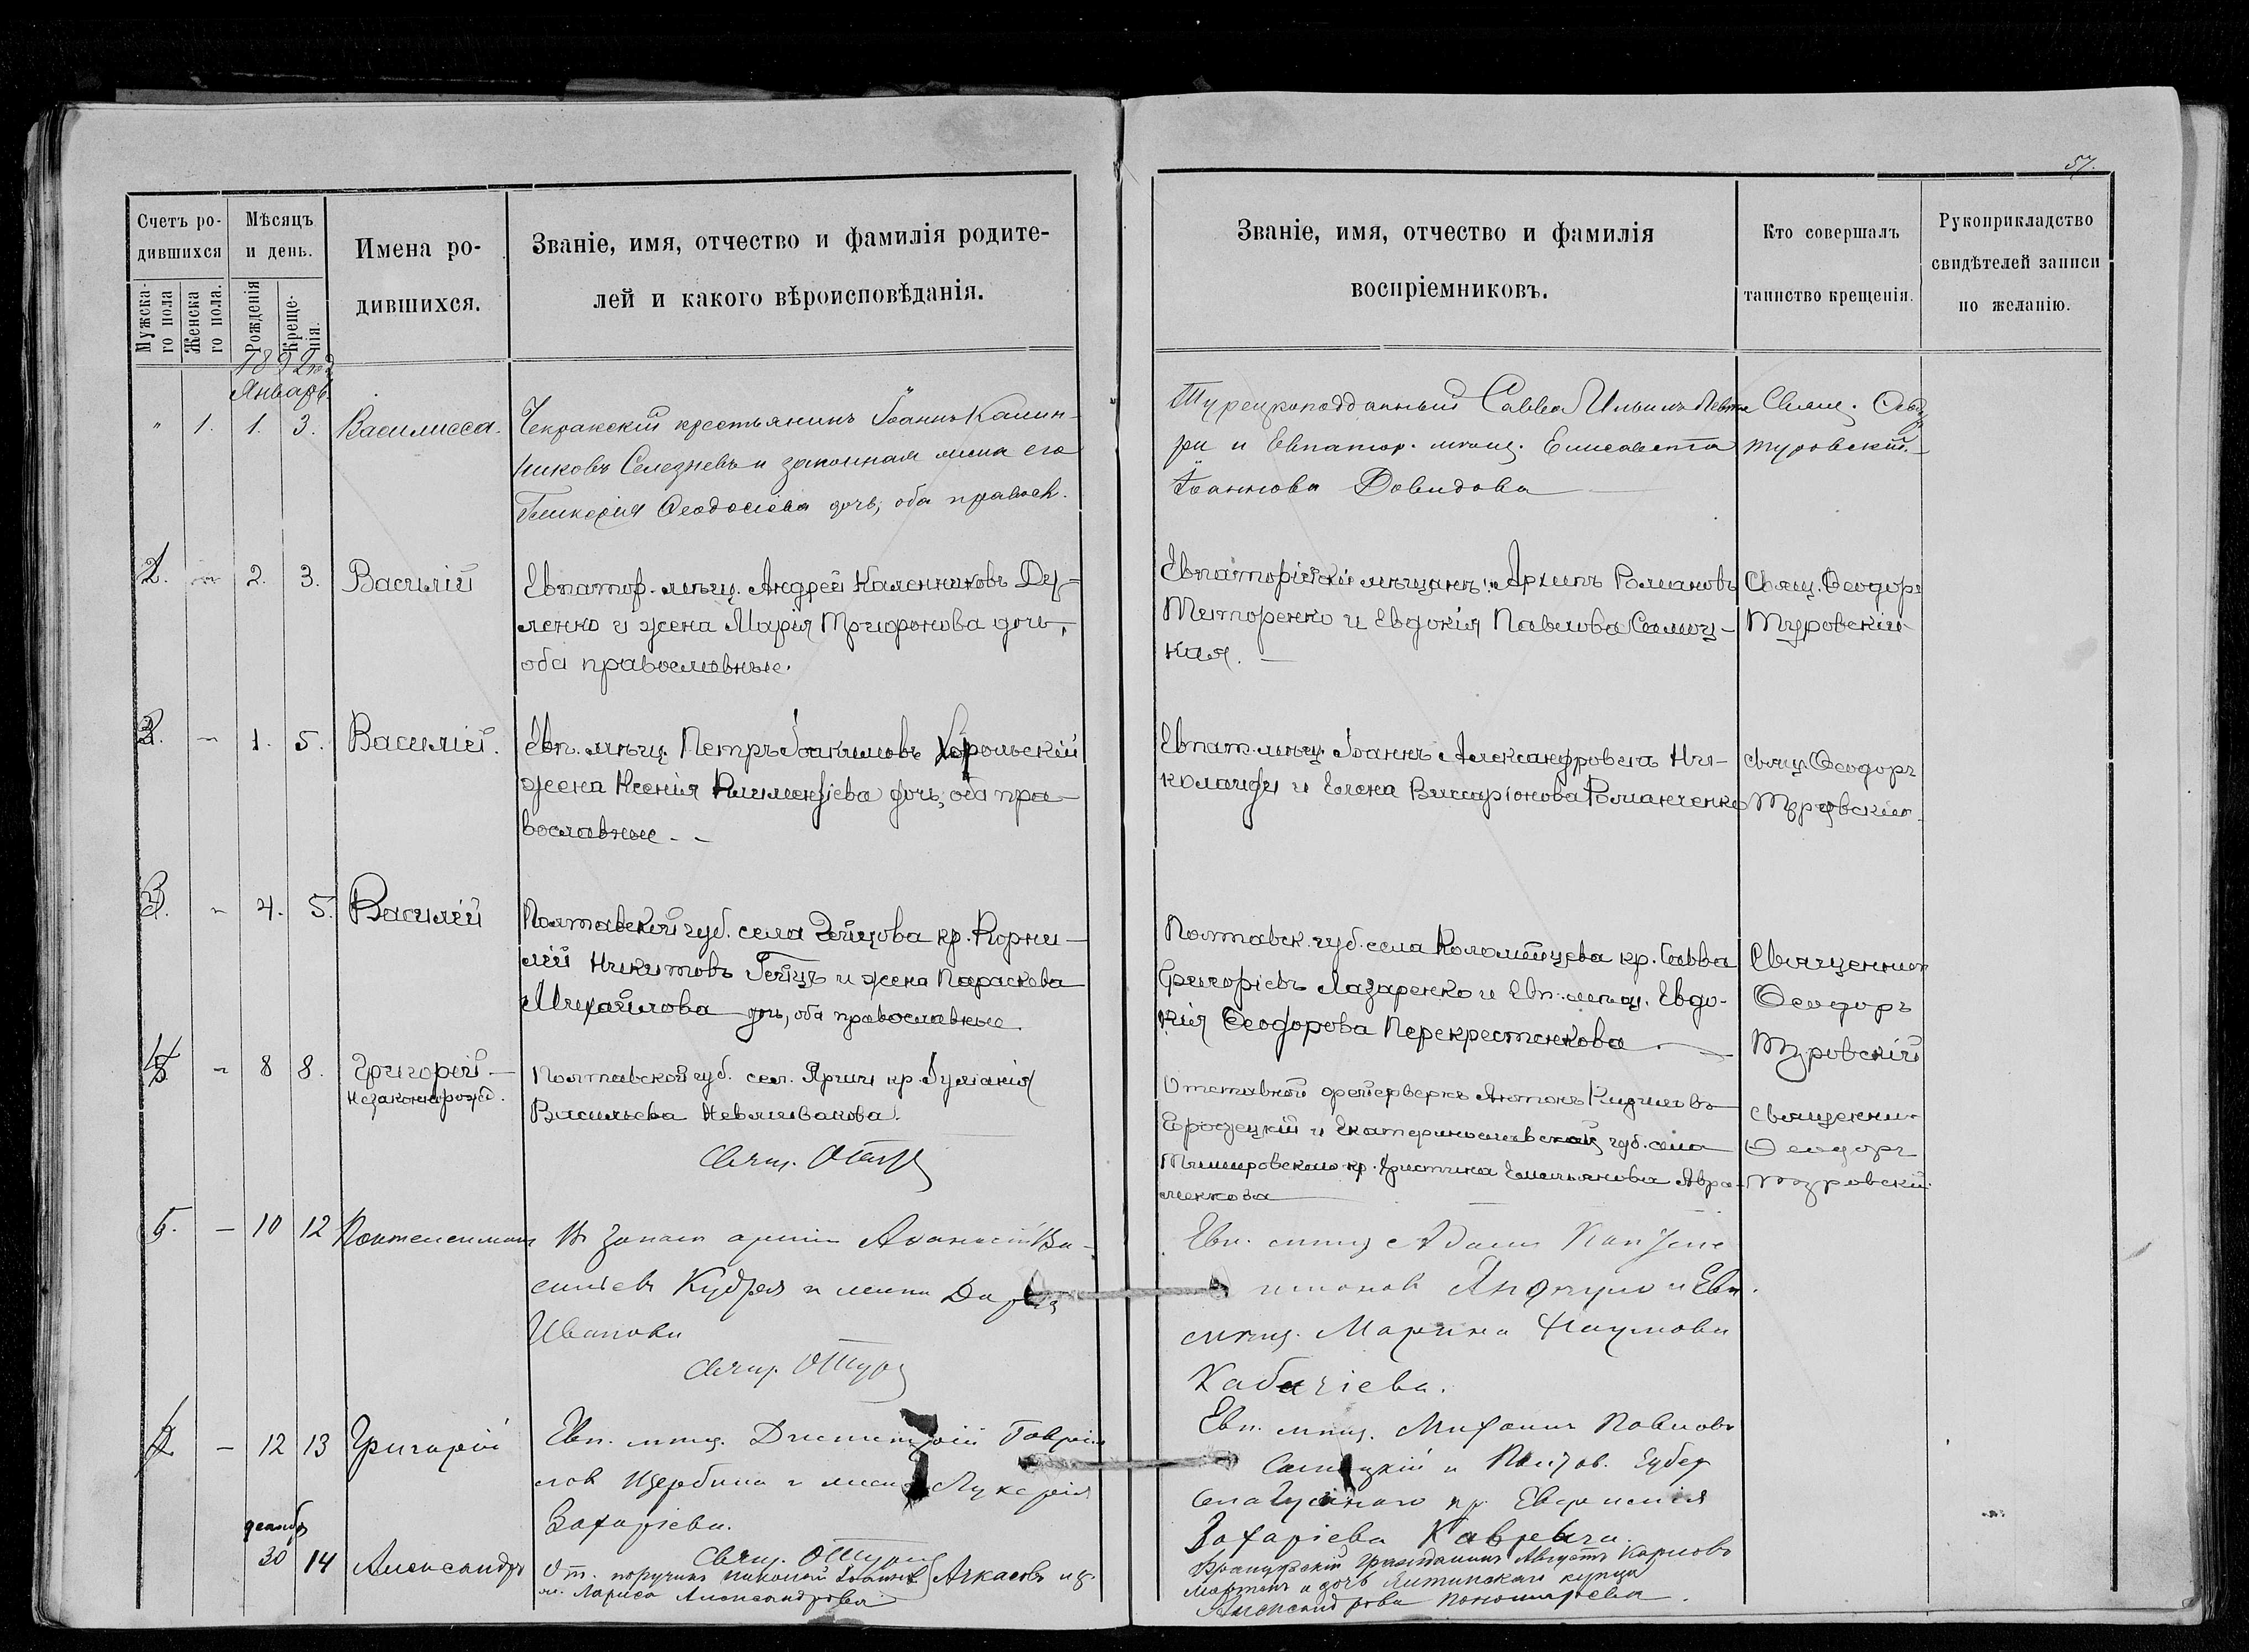 57.
Счетъ ро-
дившихся
Мужска-
го пола
Женска
го пола.
Мѣсяцъ
и день.
Рожденія
Креще-
нія.
Имена ро-
дившихся.
Званіе, имя, отчество и фамилія родите-
лей и какого вѣроисповѣданія.
Званіе, имя, отчество и фамилія
воспріемниковъ.
Кто совершалъ
таинство крещенія.
Рукоприкладство
свидѣтелей записи
по желанію.
1892 год
Январь
" 1. 1. 3. Василисса.
Чекракскій крестьянинъ Іоаннъ Калин-
никовъ Селезневъ и законная жена его
Гликерія Ѳеодосіева дочь, оба правосл.
Турецкоподданный Савва Ильинъ
ри и Евпатор. мѣщ. Елисавета
Іоаннова Довидова
Свящ. Ѳеод
Туровскій.
2. 3. Василій
Евпатор. мѣщ. Андрей Каленниковъ Ду-
ленко и жена Марія Трифонова дочь,
оба православные.
Евпаторійскіе мѣщане: Архипъ Романовъ
Титоренко и Евдокія Павлова
кая.
Свящ. Ѳеодоръ
Туровскій
1. 5. Василій.
Евп. мѣщ. Петръ Іоакимовъ Хорольскій
жена Ксенія Климентіева дочь, оба пра-
вославные
Евпат. мѣщ. Іоаннъ Александровъ Ни-
колаиди и Елена Виссаріонова Романченко
свящ. Ѳеодоръ
Туровскій
4. 5. Василій
Полтавской губ. села кр. Корни-
лій Никитовъ Гейцъ и жена Параскева
Михайлова дочь, оба православные
Полтавск. губ. села Коломійцева кр. Савва
Григорьевъ Лазаренко и Евп. мѣщ. Евдо-
кія Ѳеодорова Перекрестенкова
Священник
Ѳеодоръ
Туровскій
8 8. Григорій
незаконнорожд.
Полтавской губ. сел. Яриги кр. Іуліанія
Васильева Невливакова.
Свящ. Ѳ Тур
Отставной фейерверкъ Антонъ
и Екатеринославской губ. села
кр. Христина Емельянова Авра-
менкова
священник
Ѳеодоръ
Туровскій
5. - 10 12 Пантелеимонъ
В запасѣ арміи Аѳанасій Ва-
сильевъ Кудря и жена Дарья
Иванова
Свящ. Ѳ Тур
Евп. мѣщ. Адам
и Евп.
мѣщ. Марина Наумова
Кабачіева.
- 12 13 Григорій
Евп. мѣщ. Димитрій Гаврии
лов Щербина и жена Лукерія
Захаріева.
Свящ. Ѳ Тур
Евп. мѣщ. Михаилъ Павловъ
и Полтов. Губер
кр. Евфимія
Захаріева
декабр
30 14 Александръ
От. поручикъ Николай Іоаннов Ачкасовъ и ж.
Лариса Александрова
Французскій гражданинъ Августъ Карловъ
Мартенъ и дочь Ялтинскаго купца
Александрова Пономарева.